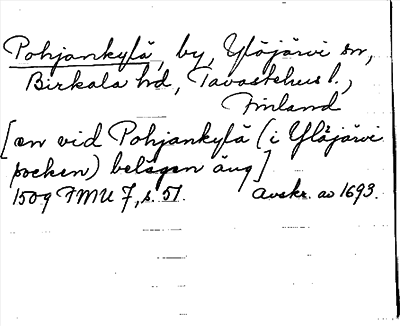 Pohjankylä, by, Ylöjärvi sn,
Birkala hd, Tavastehus l.,
Finland
[en vid Pohjankylä (i Ylöjärvi
socken) belägen äng]
1509 FMU 7, s. 51. Avskr. av 1693.